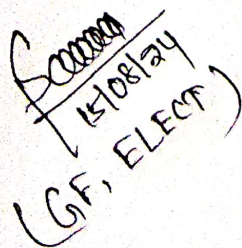 15/08/24
(GF, ELECT)